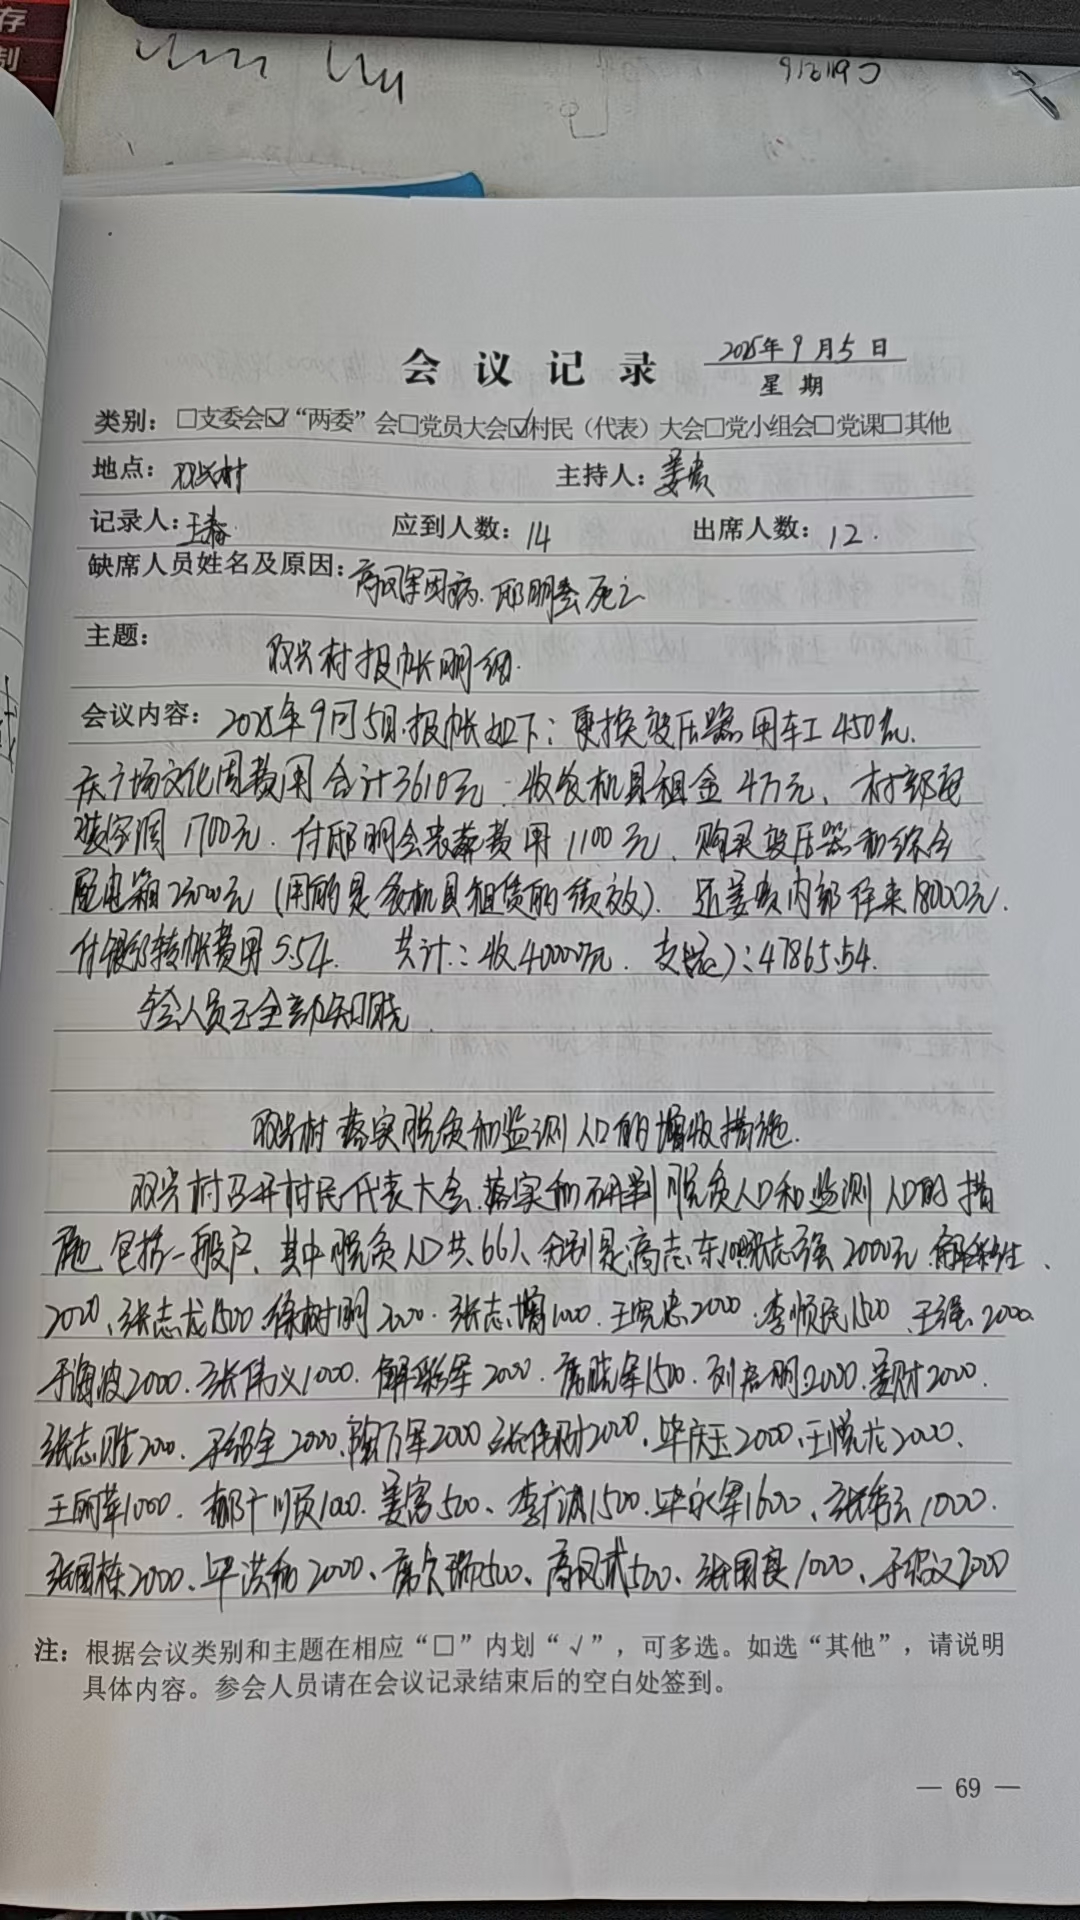 存
制
会议记录 2025年9月5日
星期
类别：□支委会☑“两委”会□党员大会☑村民（代表）大会□党小组会□党课□其他
地点：双兴村 主持人：姜贵
记录人：王春 应到人数：14 出席人数：12.
缺席人员姓名及原因：高凤军因病、邴明会死亡
主题：双兴村报帐明细.
会议内容：2025年9月5日.报帐如下：更换变压器用车工450元.
庆广场文化周费用合计3610元.收农机具租金4万元、村部电
1700元.付邴明会丧葬费用1100元、购买变压器和综合
配电箱23000元(用的是农机具租赁的绩效).还姜贵内部往来18000元.
付银行转帐费用5.54.共计:收40000元.支：47865.54.
与会人员已全部知晓
双兴村落实脱贫和监测人口的增收措施.
双兴村召开村民代表大会.落实和研判脱贫人口和监测人口的措
施包括一般户、其中脱贫人口共66人分别是高志东 张志强2000元.解彩生、
2000、张志龙1500.徐树明2000.张志增1000.王宪忠2000.李顺民1500 王强2000.
于海波2000.张伟义1000.解彩军2000.席晓军1500.刘启明2000.姜财2000.
张志胜2000.于绍全2000、陶万军2000张伟树2000、毕庆玉2000、王悦龙2000、
王丽苹1000.郝广顺1000.姜富500、李广波1500.毕永军1600、张 1000.
张国栋2000、毕洪和2000、席 500、高凤武500、张国良1000、于绍义2000
注：根据会议类别和主题在相应“□”内划“√”，可多选。如选“其他”，请说明
具体内容。参会人员请在会议记录结束后的空白处签到。
— 69 —